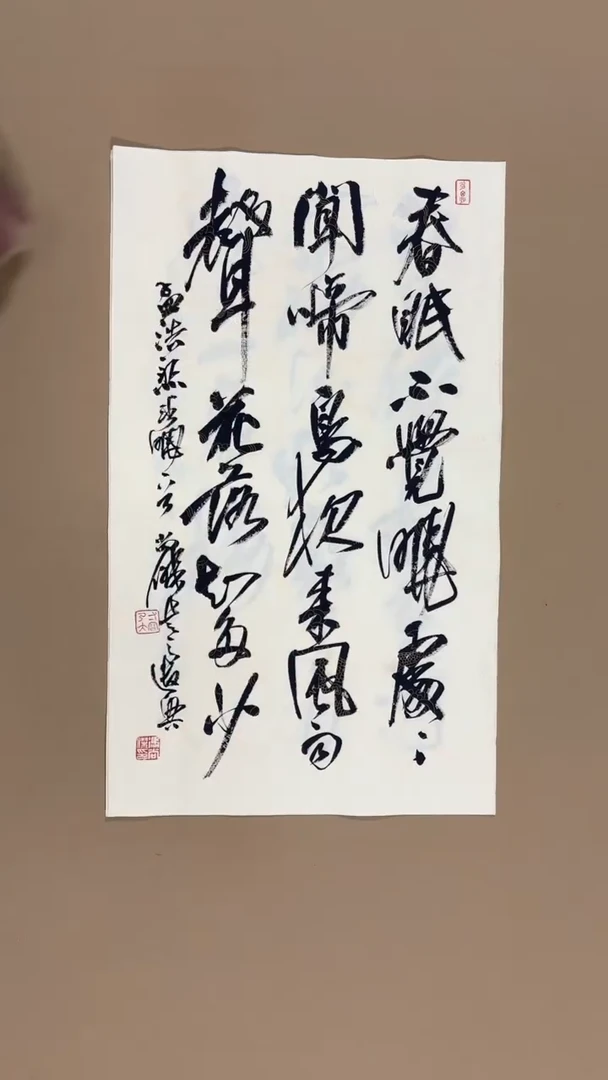 春眠不覺曉處〻
聞啼鳥夜来風雨
聲花落知多少
孟浩然春曉